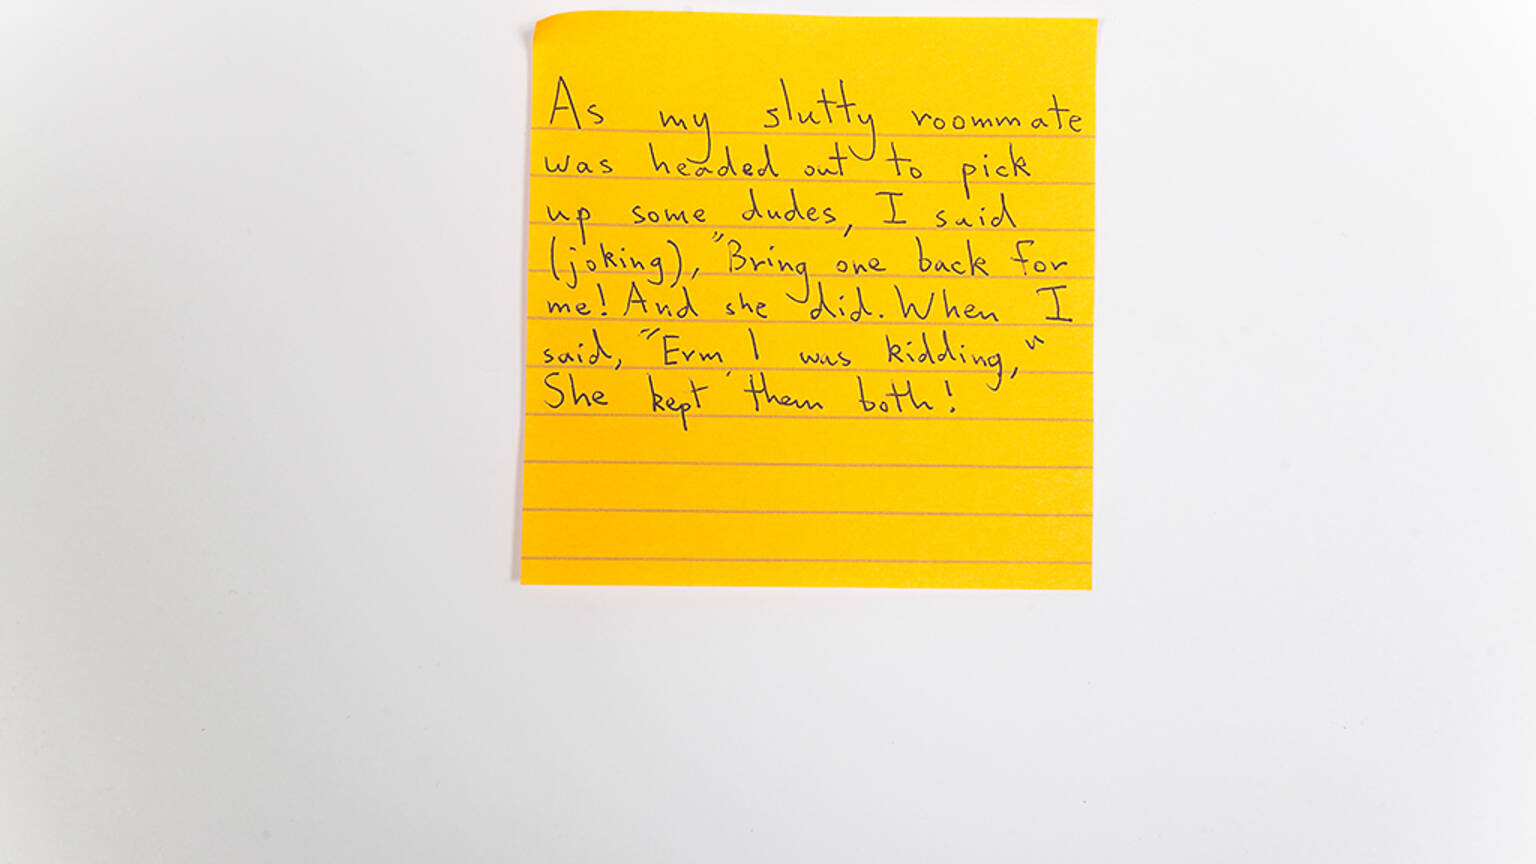 As my slutty roommate
was headed out to pick
up some dudes, I said
(joking), "Bring one back for
me! And she did. When I
said, "Erm, I was kidding,"
She kept them both!